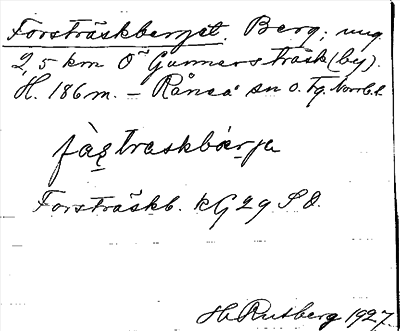 Forsträskberget. Berg; ung.
2,5 km Ö Gunnersträsk (by).
H. 186 m. – Råneå sn o. tg. Norrb. l.
fàs̱traskbár̯je
Forsträskb. kG 29 SO.
H. Rutberg 1927.